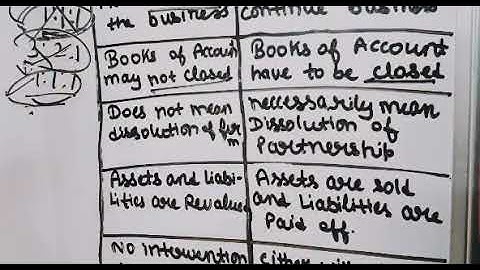 the business
continue business
Books of Accoun
may not closed
Books of Account
have to be closed
Does not mean
dissolution of fir
m
neccessarily mean
Dissolution of
Partnership
Assets and Liabi-
lities are Revalued
Assets are sold
and Liabilities are
Paid off.
No intervention
either will